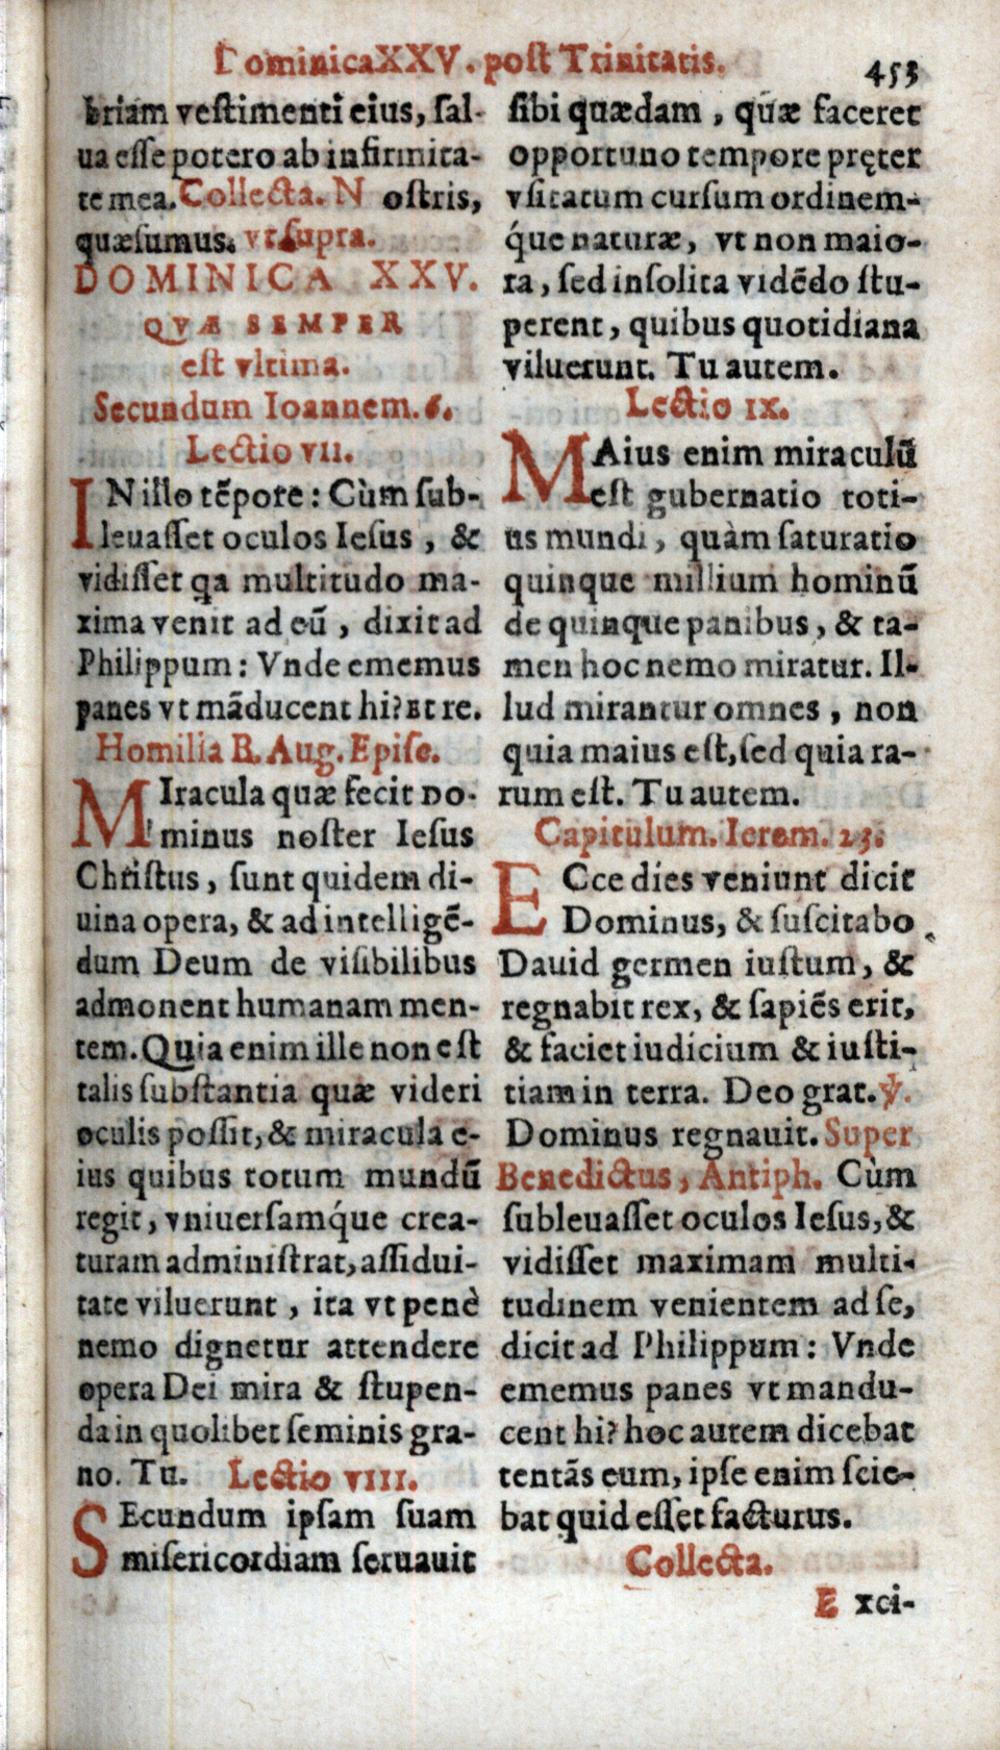 Dominica XXV. post Trinitatis.
453
briam vestimenti eius, sal-
ua esse potero ab infirmita-
te mea. Collecta. Nostris,
quæsumus. vt supra.
DOMINICA XXV.
QVÆ SEMPER
est vltima.
Secundum Ioannem. 6.
Lectio VII.
IN illo tēpore: Cùm sub-
leuasset oculos Iesus, &
vidisset qa multitudo ma-
xima venit ad eū, dixit ad
Philippum: Vnde ememus
panes vt māducent hi? Et re.
Homilia B. Aug. Episc.
MIracula quæ fecit Do-
minus noster Iesus
Christus, sunt quidem di-
uina opera, & ad intelligē-
dum Deum de visibilibus
admonent humanam men-
tem. Quia enim ille non est
talis substantia quæ videri
oculis possit, & miracula e-
ius quibus totum mundū
regit, vniuersamq́ue crea-
turam administrat, assidui-
tate viluerunt, ita vt penè
nemo dignetur attendere
opera Dei mira & stupen-
da in quolibet seminis gra-
no. Tu. Lectio VIII.
SEcundum ipsam suam
misericordiam seruauit
sibi quædam, quæ faceret
opportuno tempore pręter
vsitatum cursum ordinem-
q́ue naturæ, vt non maio-
ra, sed insolita vidēdo stu-
perent, quibus quotidiana
viluerunt. Tu autem.
Lectio IX.
MAius enim miraculū
est gubernatio toti-
us mundi, quàm saturatio
quinque millium hominū
de quinque panibus, & ta-
men hoc nemo miratur. Il-
lud mirantur omnes, non
quia maius est, sed quia ra-
rum est. Tu autem.
Capitulum. Ierem. 23.
ECce dies veniunt dicit
Dominus, & suscitabo
Dauid germen iustum, &
regnabit rex, & sapiēs erit,
& faciet iudicium & iusti-
tiam in terra. Deo grat. ℣.
Dominus regnauit. Super
Benedictus, Antiph. Cùm
subleuasset oculos Iesus, &
vidisset maximam multi-
tudinem venientem ad se,
dicit ad Philippum: Vnde
ememus panes vt mandu-
cent hi? hoc autem dicebat
tentās eum, ipse enim scie-
bat quid esset facturus.
Collecta.
Exci-